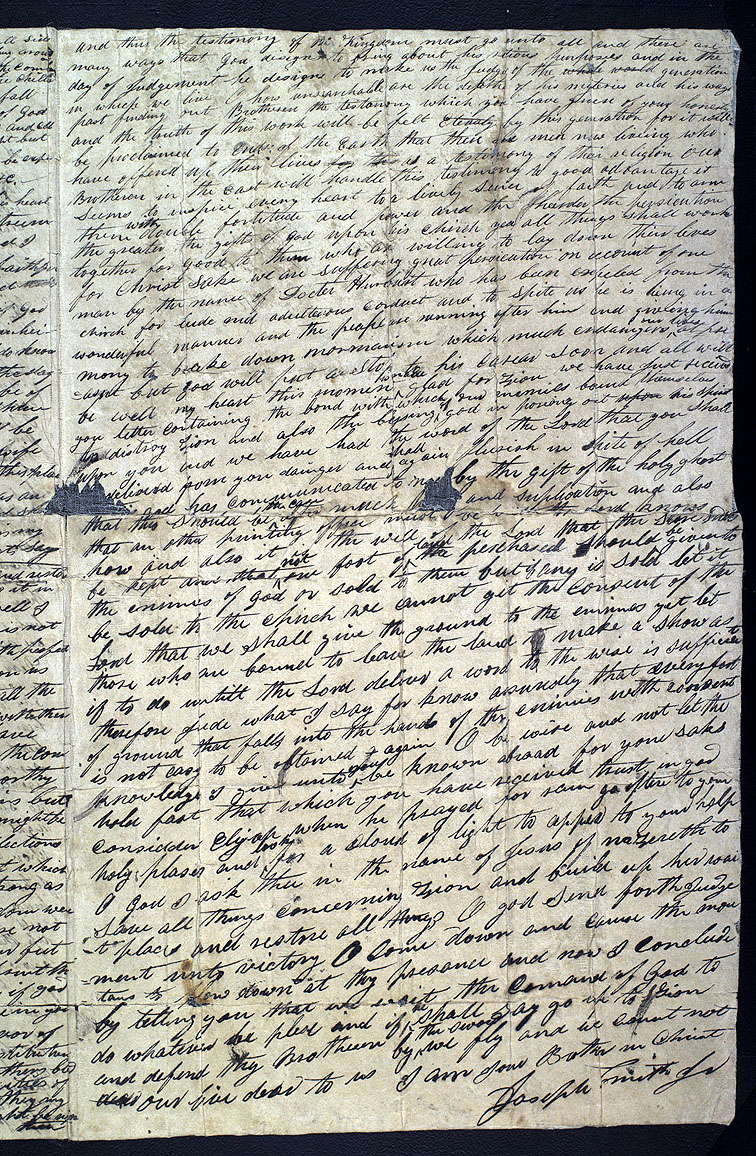 and thus the testimony of the Kingdom must go unto all and there are
many ways that God designs to bring about his ritious purposes and in the
day of Judgement he designs to make us the Judges of the whole world generation
in which we live O how unsearchable are the depths of his misteries and his ways
past finding out Brotheren the testamony which you have given of your honesty
and the truth of this work will be felt eternaly by this generation for it will
be proclaimed to ends of the Earth that there is men now living who
have offerd up their lives for this as a testamony of their religion our
Brotheren in the East will handle this testimony to good advantage it
Seems to inspire every heart to a lively sence of faith and to arm
them with double fortitude and power and the harder the persicution
the greater the gifts of God upon his church yea all things shall work
together for good to them who are willing to lay down their lives
for Christ Sake we are suffering great persecution on account of one
man by the name of Docter Hurlburt who has been expeled from the
church for lude and adulterous conduct and to spite us he is lieing in a
wonderful manner and the peapl are running after him and giveing him
mony to brake down mormanism which much endangers our lives at pre
asnt but God will put a stop to his carear soon and all will
be well my heart this moment is glad for Zion we have just received
you letter containing the bond with which our enemies bound themselvs
to destroy Zion and also the blesing of god in pouring out upon his Spirit
upon you and we have had the word of the Lord that you shall
delivered from you danger and shall again flurish in spite of hell
god has communicated to me by the gift of the holy ghost
that this should be the case much and suplication and also
that an other printing office must be the Lord knows
how and also it is the will of the Lord that the Store should
be kept and that not one foot of land perchased should be given to
the enimies of god or sold to them but if any is sold let it
be sold to the chirch we cannot get the consent of the
Lord that we shall give the ground to the enimies yet let
those who are bound to leave the land to make a show as
if to do untill the Lord deliver a word to the wise is sufficient
therefore Jude what I say for know assuredly that every foot
of ground that falls into the hands of the enimies with consent
is not easy to be obtained again O be wise and not let the
knowledge I give unto you be known abroad for your saks
hold fast that which you have received trust in god
considder Elijah when he prayed for rain go often to your
holy places and look for a cloud of light to appear to your help
O God I ask thee in the name of Jesus of nazereth to
Save all things concerning Zion and build up her wai
st places and restore all things O god send forth Judge
ment unto victory O come down and cause the moun
tans to flow down at thy presance and now I conclude
by telling you that we wait the comand of God to
do whatever he pleas and if shall say go up to Zion
and defend thy Brotheren by the sword we fly and we count not
our live dear to us I am your Brother in Christ
Joseph Smith Jr